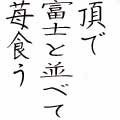 頂で
富士と並べて
苺食う